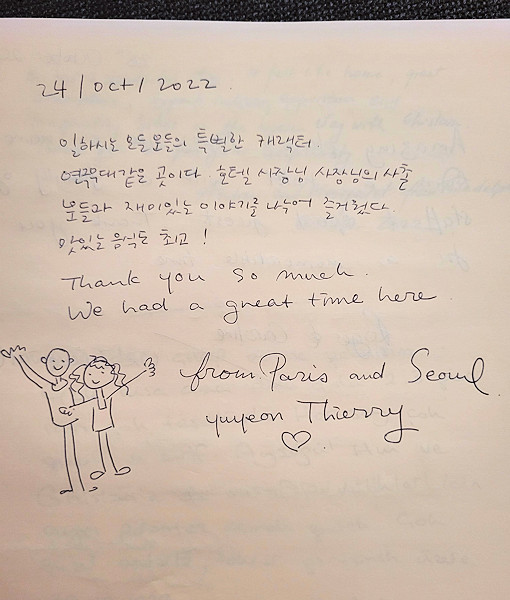 24/Oct/2022.
일하시는 모든분들의 특별한 캐랙터.
연극무대같은 곳이다. 호텔 사장님 사장님의 사촌
모든과 재미있는 이야기를 나누어 즐거웠다
맛있는 음식도 최고!
Thank you so much.
We had a great time here.
from Paris and Seoul
yuyeon Thierry